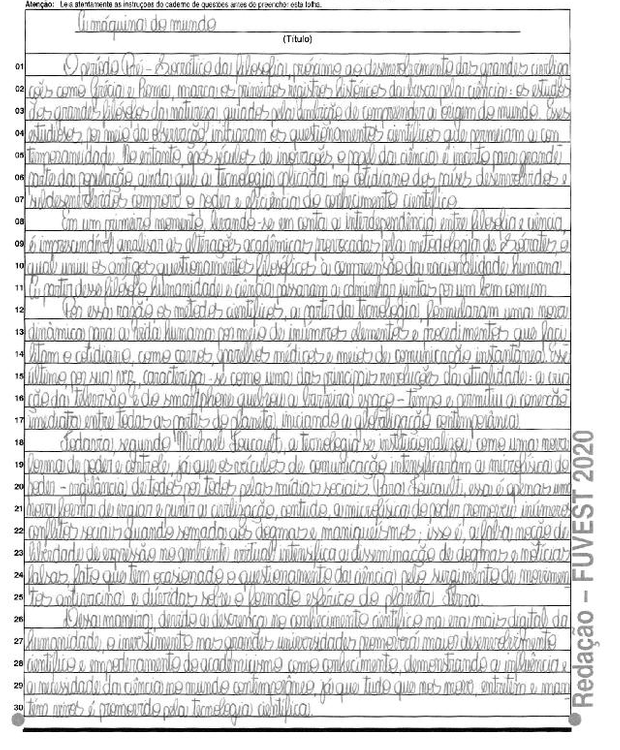 Atenção: Leia atentamente as instruções do caderno de questões antes de preencher esta folha.
A máquina do mundo
(Título)
01 O período Pré-Socrático da filosofia, próximo ao desenvolvimento das grandes civiliza
02 ções como Grécia e Roma, marca os primeiros registros históricos da busca pela ciência: os estudos
03 dos grandes filósofos da natureza guiados pela ambição de compreender a origem do mundo. Esses
04 estudiosos, por meio da observação, iniciaram os questionamentos científicos que permeiam a con
05 temporaneidade. No entanto, após séculos de inovações, o papel da ciência é incerto para grande
06 parte da população, ainda que a tecnologia aplicada no cotidiano dos países desenvolvidos e
07 subdesenvolvidos comprove o poder e eficiência do conhecimento científico.
08 Em um primeiro momento, levando-se em conta a interdependência entre filosofia e ciência,
09 é imprescindível analisar as alterações acadêmicas provocadas pela metodologia de Sócrates, o
10 qual uniu os antigos questionamentos filosóficos à compreensão da racionalidade humana.
11 A partir desse filósofo humanidade e ciência passaram a caminhar juntas por um bem comum.
12 Por essa razão os métodos científicos, a partir da tecnologia, formularam uma nova
13 dinâmica para a vida humana por meio de inúmeros elementos e procedimentos que faci
14 litam o cotidiano, como carros, aparelhos médicos e meios de comunicação instantânea. Esse
15 último por sua vez, caracteriza-se como uma das principais revoluções da atualidade: a cria
16 ção da televisão e do smartphone quebrou a barreira espaço-tempo e permitiu a conexão
17 imediata entre todas as partes do planeta, iniciando a globalização contemporânea.
18 Todavia, segundo Michael Foucault, a tecnologia se institucionalizou como uma nova
19 forma de poder e controle, já que os veículos de comunicação intensificaram a microfísica do
20 poder - vigilância de todos por todos pelas mídias sociais. Para Foucault, essa é apenas uma
21 nova forma de vigiar e punir a civilização, contudo, a microfísica do poder promove inúmeros
22 conflitos sociais quando somada aos dogmas e maniqueísmos, isso é, a falsa noção de
23 liberdade de expressão no ambiente virtual intensifica a disseminação de dogmas e notícias
24 falsas, fato que tem ocasionado o questionamento da ciência pelo surgimento de movimen
25 tos antivacina e dúvidas sobre o formato esférico do planeta Terra.
26 Dessa maneira, devido a descrença no conhecimento científico na era mais digital da
27 humanidade, o investimento nas grandes universidades promoverá maior desenvolvimento
28 científico e empoderamento do academicismo como conhecimento, demonstrando a influência e
29 a necessidade da ciência no mundo contemporâneo, já que tudo que nos move, entretém e man
30 tém vivos é promovido pela tecnologia científica.
Redação – FUVEST 2020